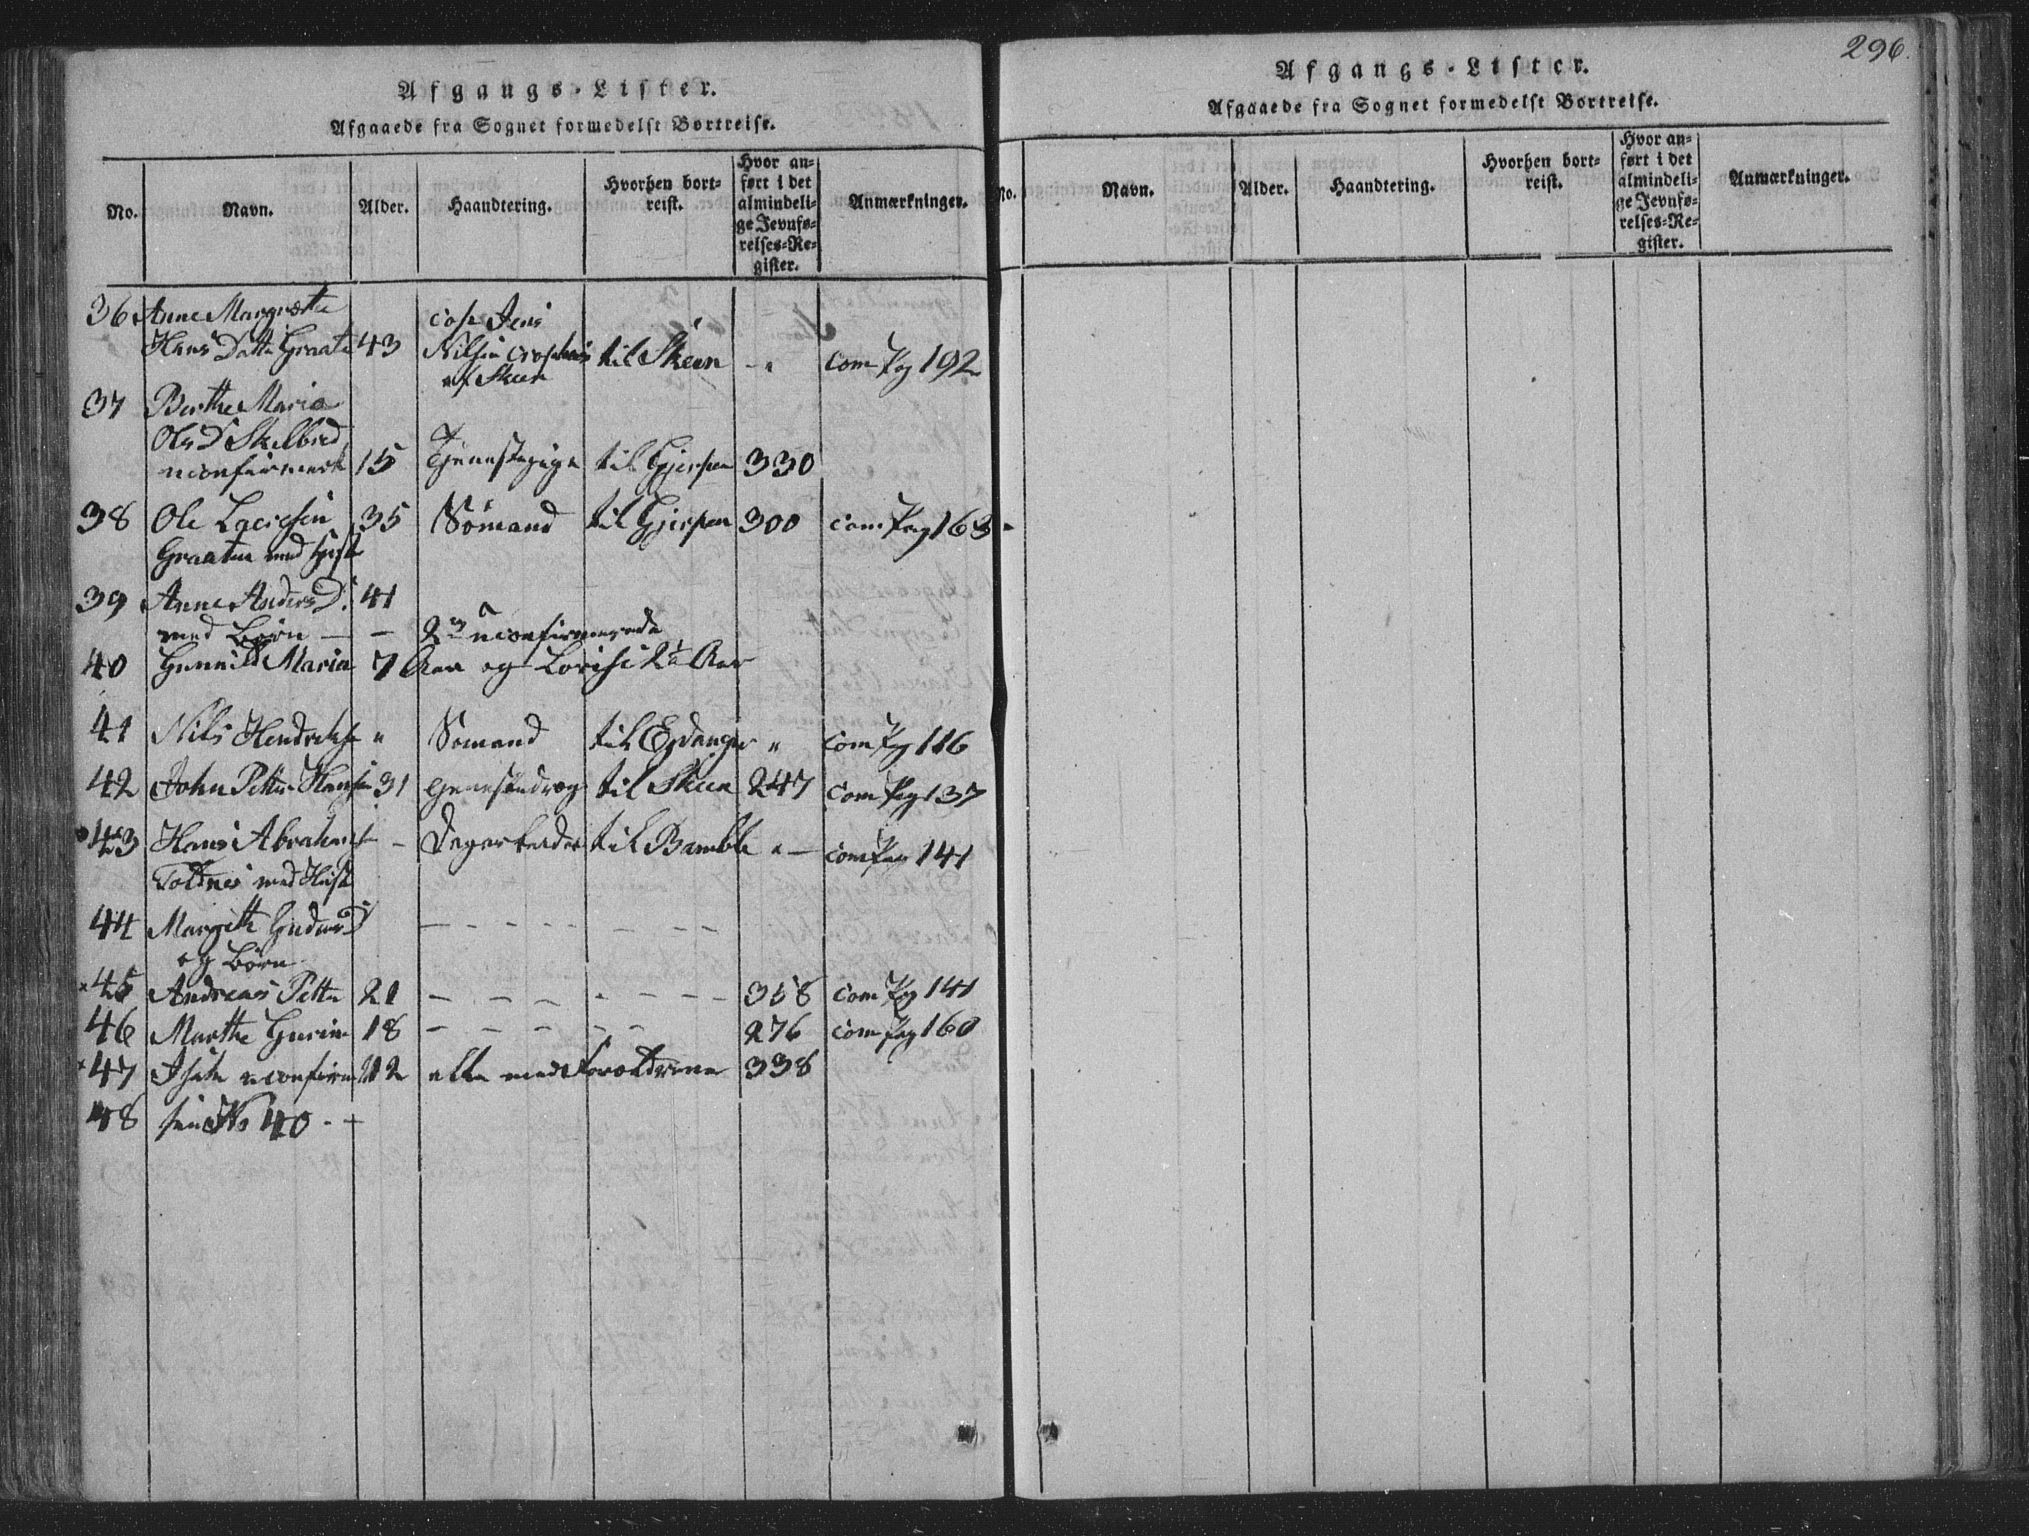 Afgangs-Lister.
Afgaaede fra Sognet formedelst Bortreise.
No. Navn. Alder. Haandtering. Hvorhen bort=reist. Hvor an=ført i det almindeli=ge Jevnfø=relses=Re=gister. Anmærkninger.
36 Anne Margrethe
Hans Datter Graaten 43 Jens Nilsen af Skeen til Skeen - " com Pag 192
37 Berthe Maria
Ols D Skilbred
uconfirmert 15 Tjenestepige til Gjerpen 330
38 Ole Larsen 35 Sømand til Gjerpen 300 com Pag 163
Graaten med Hust
39 Anne Anders D. 41
med Børn — – 2 uconfirmerede
40 Gunnild Maria 7 Aar og Lovise 2 Aar
41 Nils Hendrichs " Sømand til Eidanger " com Pag 116
42 John Petter Hansen 31 til Skeen 247 com Pag 137
43 Hans Abrahams - Dagarbeider til Bamble " — com Pag 141
Toltnes med Hust
44 Margithe D
og Børn
45 Andreas Petter 21 358 com Pag 141
46 Marthe 18 276 com Pag 160
47 uconfirm 12 alle med Forældrene 338
48 No 40 -
296.
Afgangs-Lister.
Afgaaede fra Sognet formedelst Bortreise.
No. Navn. Alder. Haandtering. Hvorhen bort=reist. Hvor an=ført i det almindeli=ge Jevnfø=relses=Re=gister. Anmærkninger.